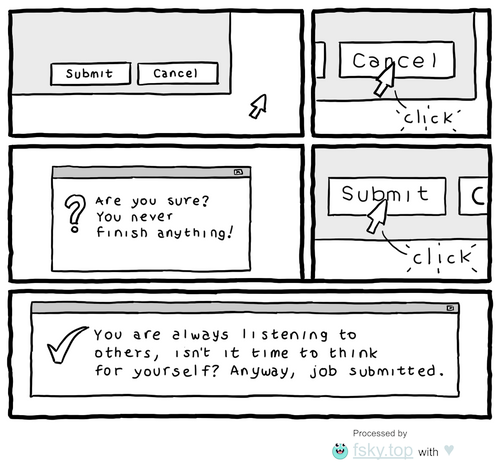 Submit
Cancel
Cancel
click
?
Are you sure?
You never
finish anything!
Submit
C
click
You are always listening to
others, isn't it time to think
for yourself? Anyway, job submitted.
Processed by
fsky.top with ♥